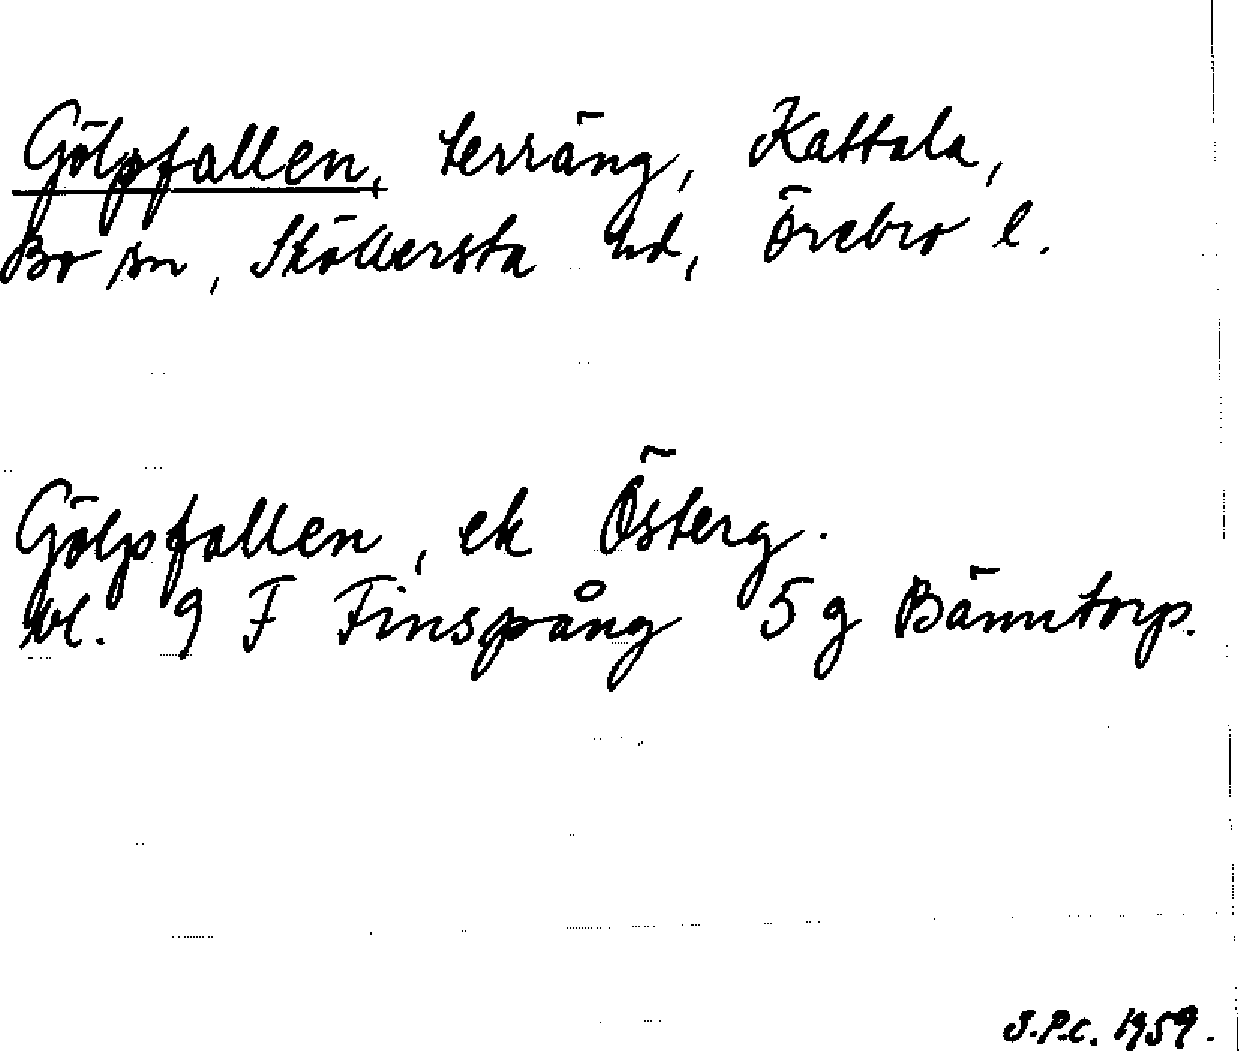 Gölpfallen, terräng, Kattala,
Bo sn, Sköllersta hd, Örebro l.
Gölpfallen, ek Österg.
bl. 9 F Finspång 5 g Bänntorp.
S.P.C. 1959.